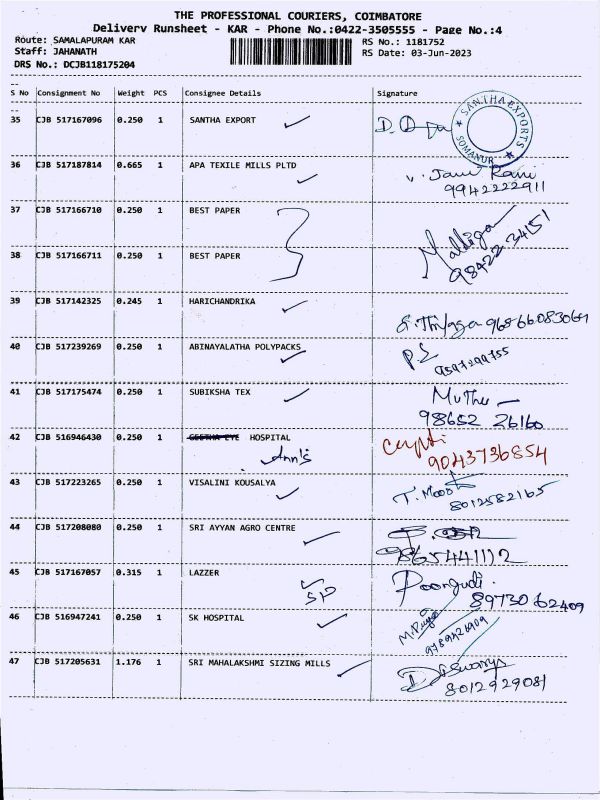 THE PROFESSIONAL COURIERS, COIMBATORE
Delivery Runsheet - KAR - Phone No.:0422-3505555 - Page No.:4
Route: SAMALAPURAM KAR RS No.: 1181752
Staff: JAHANATH RS Date: 03-Jun-2023
DRS No.: DCJB118175204
S No Consignment No Weight PCS Consignee Details Signature
35 CJB 517167096 0.250 1 SANTHA EXPORT
SANTHA EXPORTS SOMANUR
36 CJB 517187814 0.665 1 APA TEXILE MILLS PLTD
9942222911
37 CJB 517166710 0.250 1 BEST PAPER
38 CJB 517166711 0.250 1 BEST PAPER
98422 34151
39 CJB 517142325 0.245 1 HARICHANDRIKA
40 CJB 517239269 0.250 1 ABINAYALATHA POLYPACKS
41 CJB 517175474 0.250 1 SUBIKSHA TEX Muthu
98652 26160
42 CJB 516946430 0.250 1 HOSPITAL
Ann's 9043736854
43 CJB 517223265 0.250 1 VISALINI KOUSALYA
8012582165
44 CJB 517208080 0.250 1 SRI AYYAN AGRO CENTRE
9865441112
45 CJB 517167057 0.315 1 LAZZER Poongudi
SP 8973062409
46 CJB 516947241 0.250 1 SK HOSPITAL
9789426909
47 CJB 517205631 1.176 1 SRI MAHALAKSHMI SIZING MILLS
8012929081